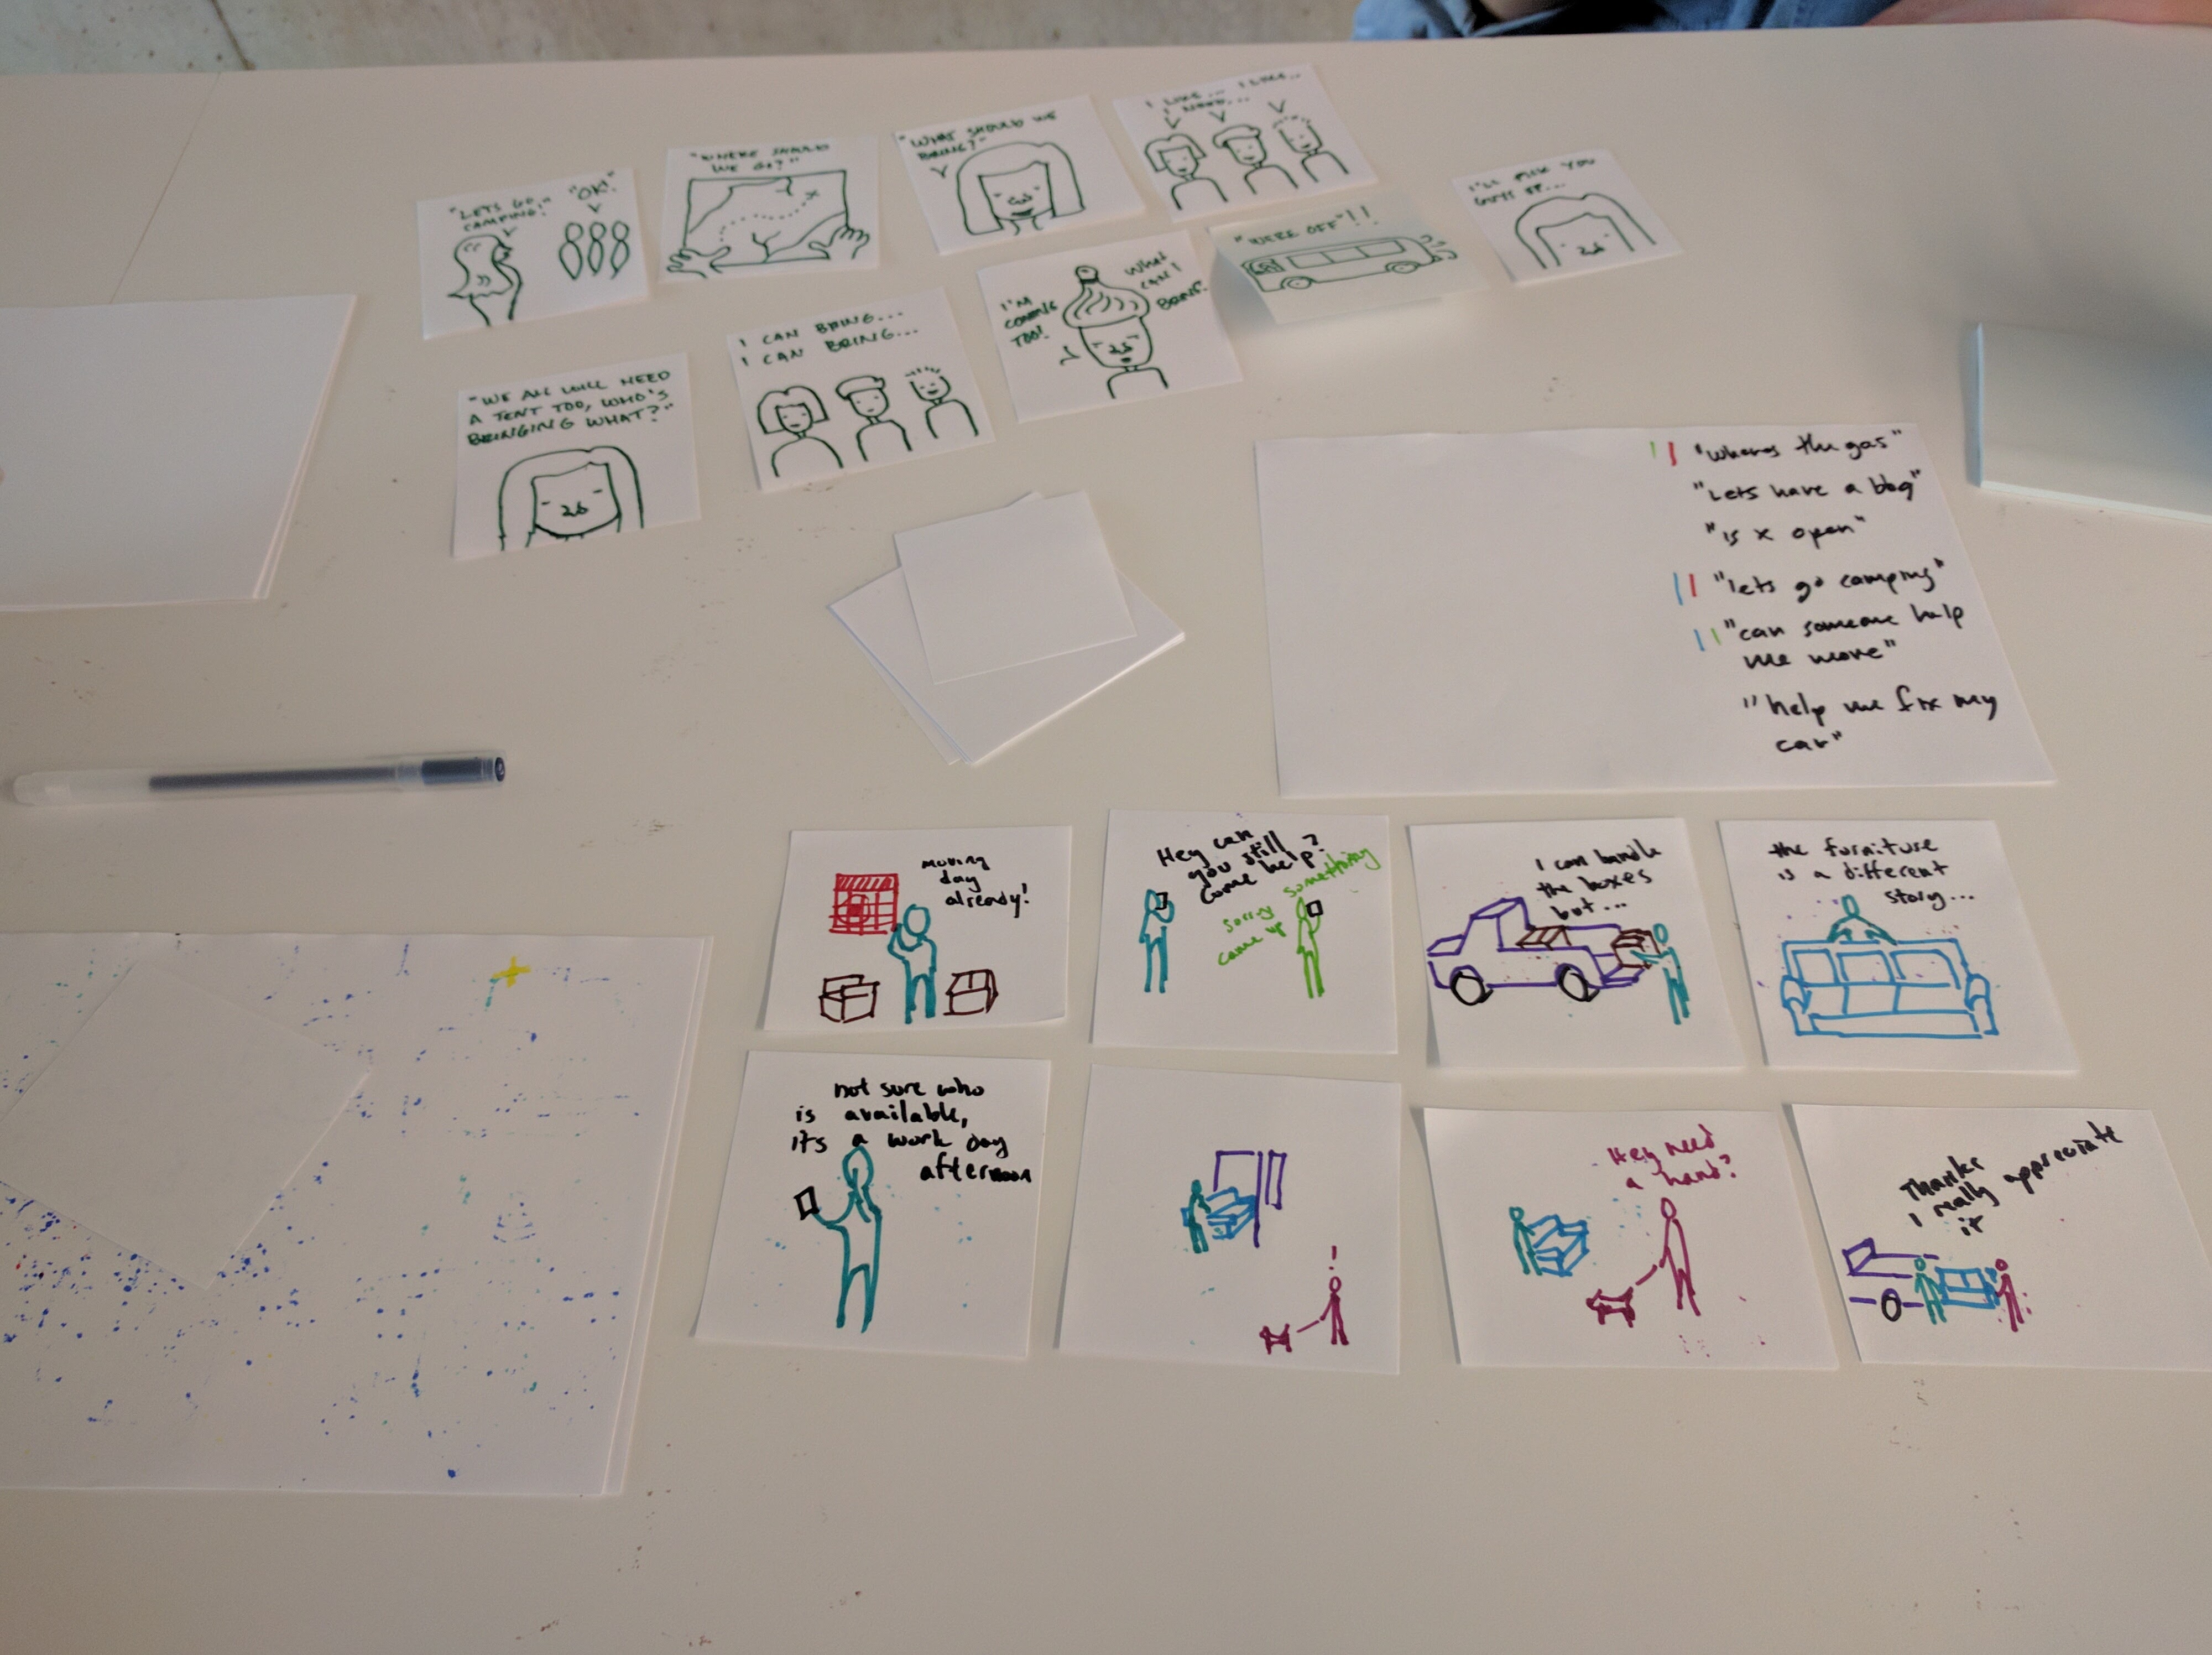 "LETS GO
CAMPING!"
"OK!"
"WHERE SHOULD
WE GO?"
"WHAT SHOULD WE
BRING?"
I LIKE... I LIKE...
I NEED...
I'LL PICK YOU
GUYS UP...
"WE ALL WILL NEED
A TENT TOO, WHO'S
BRINGING WHAT?"
I CAN BRING...
I CAN BRING...
I'M
COMING
TOO!
WHAT
CAN I
BRING?
"WERE OFF"!!
"wheres the gas"
"Lets have a bbq"
"is x open"
"lets go camping"
"can someone help
me move"
"help me fix my
car"
moving
day
already!
Hey can
you still
come help?
sorry something
came up
I can handle
the boxes
but...
the furniture
is a different
story...
not sure who
is available,
its a work day
afternoon
!
Hey need
a hand?
Thanks
I really appreciate
it